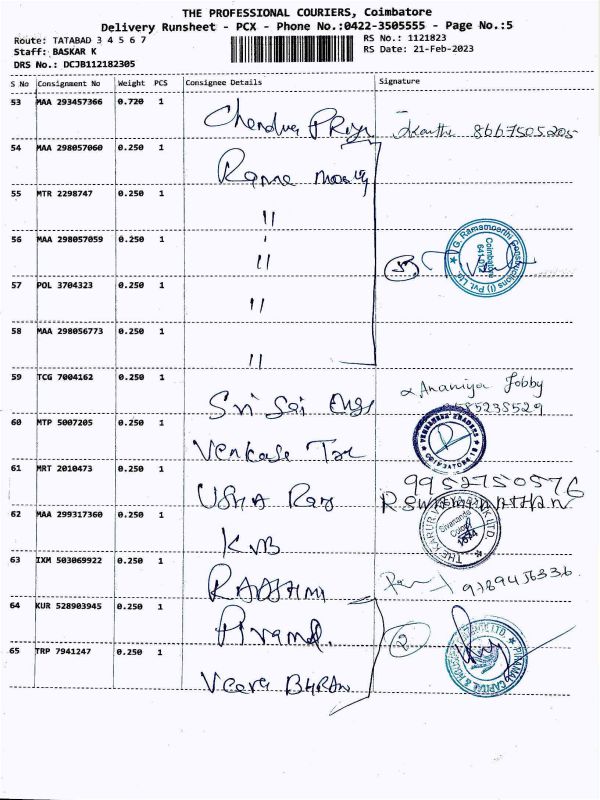 THE PROFESSIONAL COURIERS, Coimbatore
Delivery Runsheet - PCX - Phone No.:0422-3505555 - Page No.:5
Route: TATABAD 3 4 5 6 7
RS No.: 1121823
Staff: BASKAR K
RS Date: 21-Feb-2023
DRS No.: DCJB112182305
S No Consignment No Weight PCS Consignee Details Signature
53 MAA 293457366 0.720 1 8667505205
54 MAA 298057060 0.250 1
55 MTR 2298747 0.250 1 "
56 MAA 298057059 0.250 1 "
G. Ramamoorthi Constructions (I) Pvt. Ltd.
Coimbatore
57 POL 3704323 0.250 1 "
58 MAA 298056773 0.250 1 "
59 TCG 7004162 0.250 1 Sri Sai Engs Ananiya Jobby
60 MTP 5007205 0.250 1
COIMBATORE
61 MRT 2010473 0.250 1 USHA Ray 9952750576
62 MAA 299317360 0.250 1 KVB
THE KARUR VYSYA BANK LTD.
Sivananda Colony
63 IXM 503069922 0.250 1 9789456336
64 KUR 528903945 0.250 1 Piramal
65 TRP 7941247 0.250 1 Veera
PIRAMAL CAPITAL & HOUSING